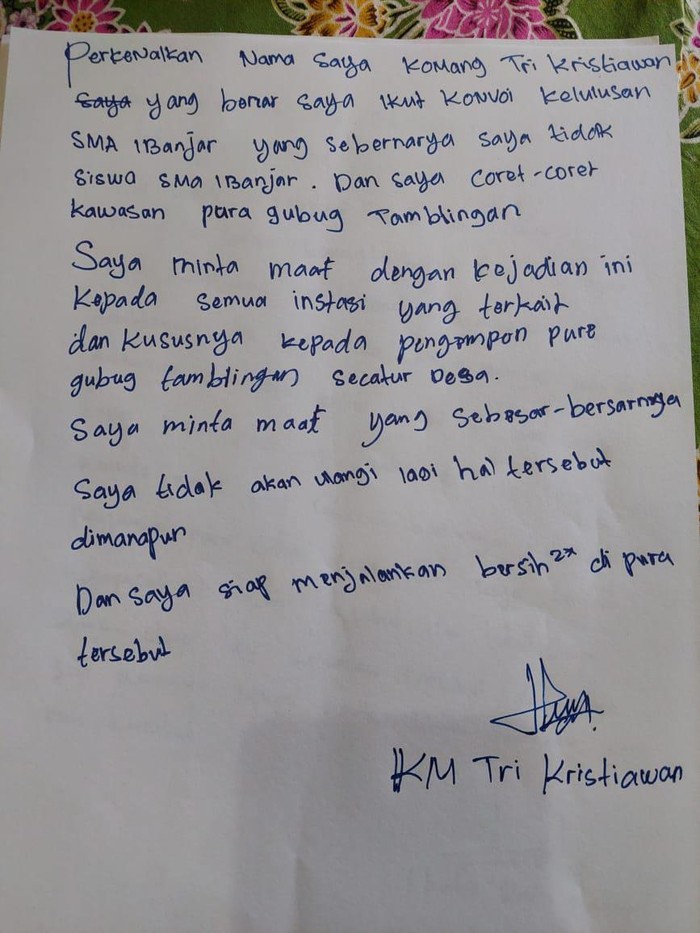 Perkenalkan Nama saya Komang Tri Kristiawan
saya yang benar saya ikut konvoi kelulusan
SMA 1 Banjar yang sebernarya saya tidak
siswa SMA 1 Banjar. Dan saya coret-coret
kawasan pura gubug Tamblingan
Saya minta maaf dengan kejadian ini
kepada semua instasi yang terkait
dan kususnya kepada pengempon pura
gubug tamblingan secatur Desa.
Saya minta maaf yang sebesar-bersarnya
Saya tidak akan ulangi lagi hal tersebut
dimanapun
Dan saya siap menjalankan bersih2x di pura
tersebut
KM Tri Kristiawan